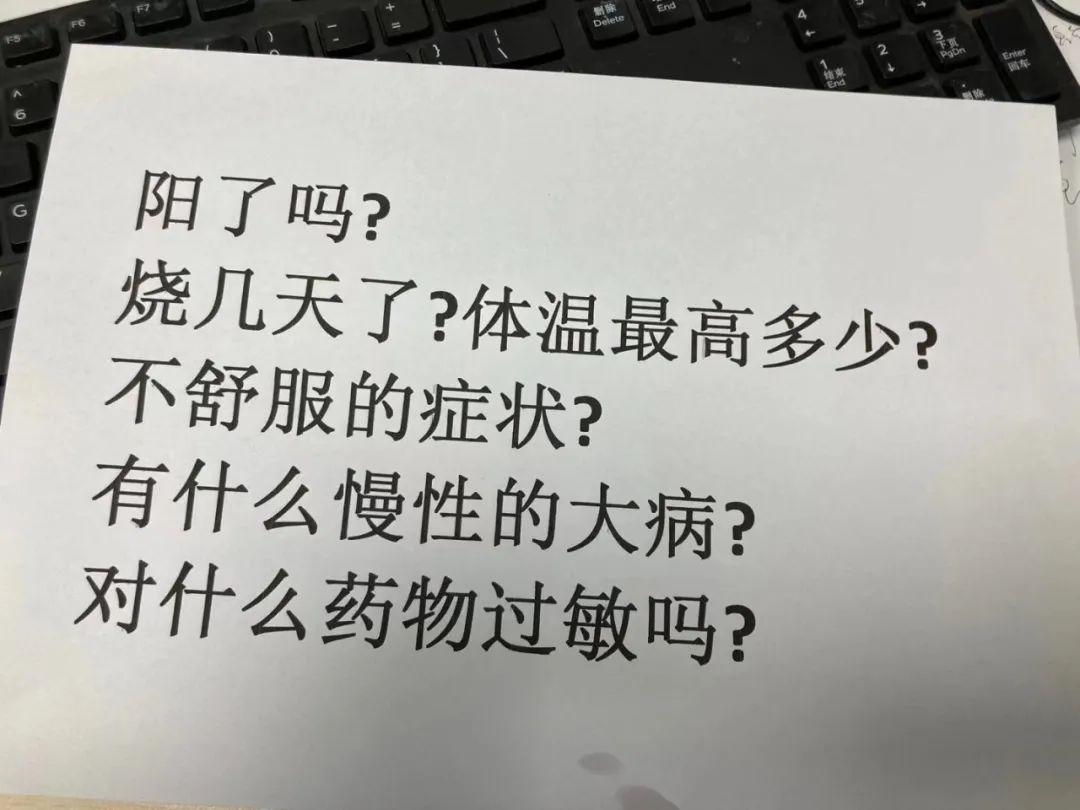 F5
F6
F7
+
=
_
-
)
}
{
|
\
删除
Delete
End
4
5
6
1
结束
End
2
3
下页
PgDn
.
删除
Enter
回车
^
6
G
阳了吗?
烧几天了?体温最高多少?
不舒服的症状?
有什么慢性的大病?
对什么药物过敏吗?